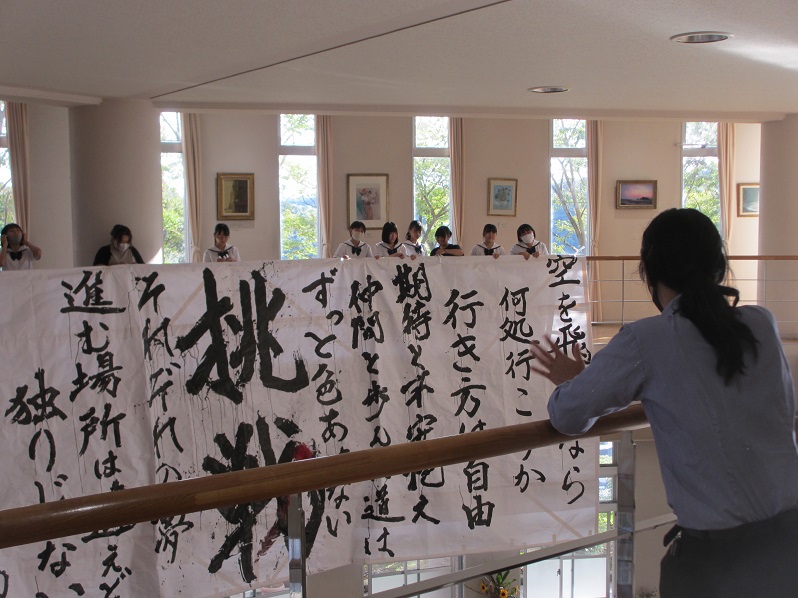 空を飛 なら
何処行こ か
行き方は自由
期待と不安抱え
仲間と歩ん 道は
ずっと色あ ない
挑戦
それぞれの夢
進む場所は違えど
独りじ ない